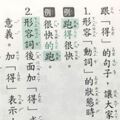 跟「得」的句子，讓大家
1. 形容「動詞」的狀態時，
例 跑得很快。
例 很快的跑。
2. 形容詞後面加「得」表示
意義。加「得」表示